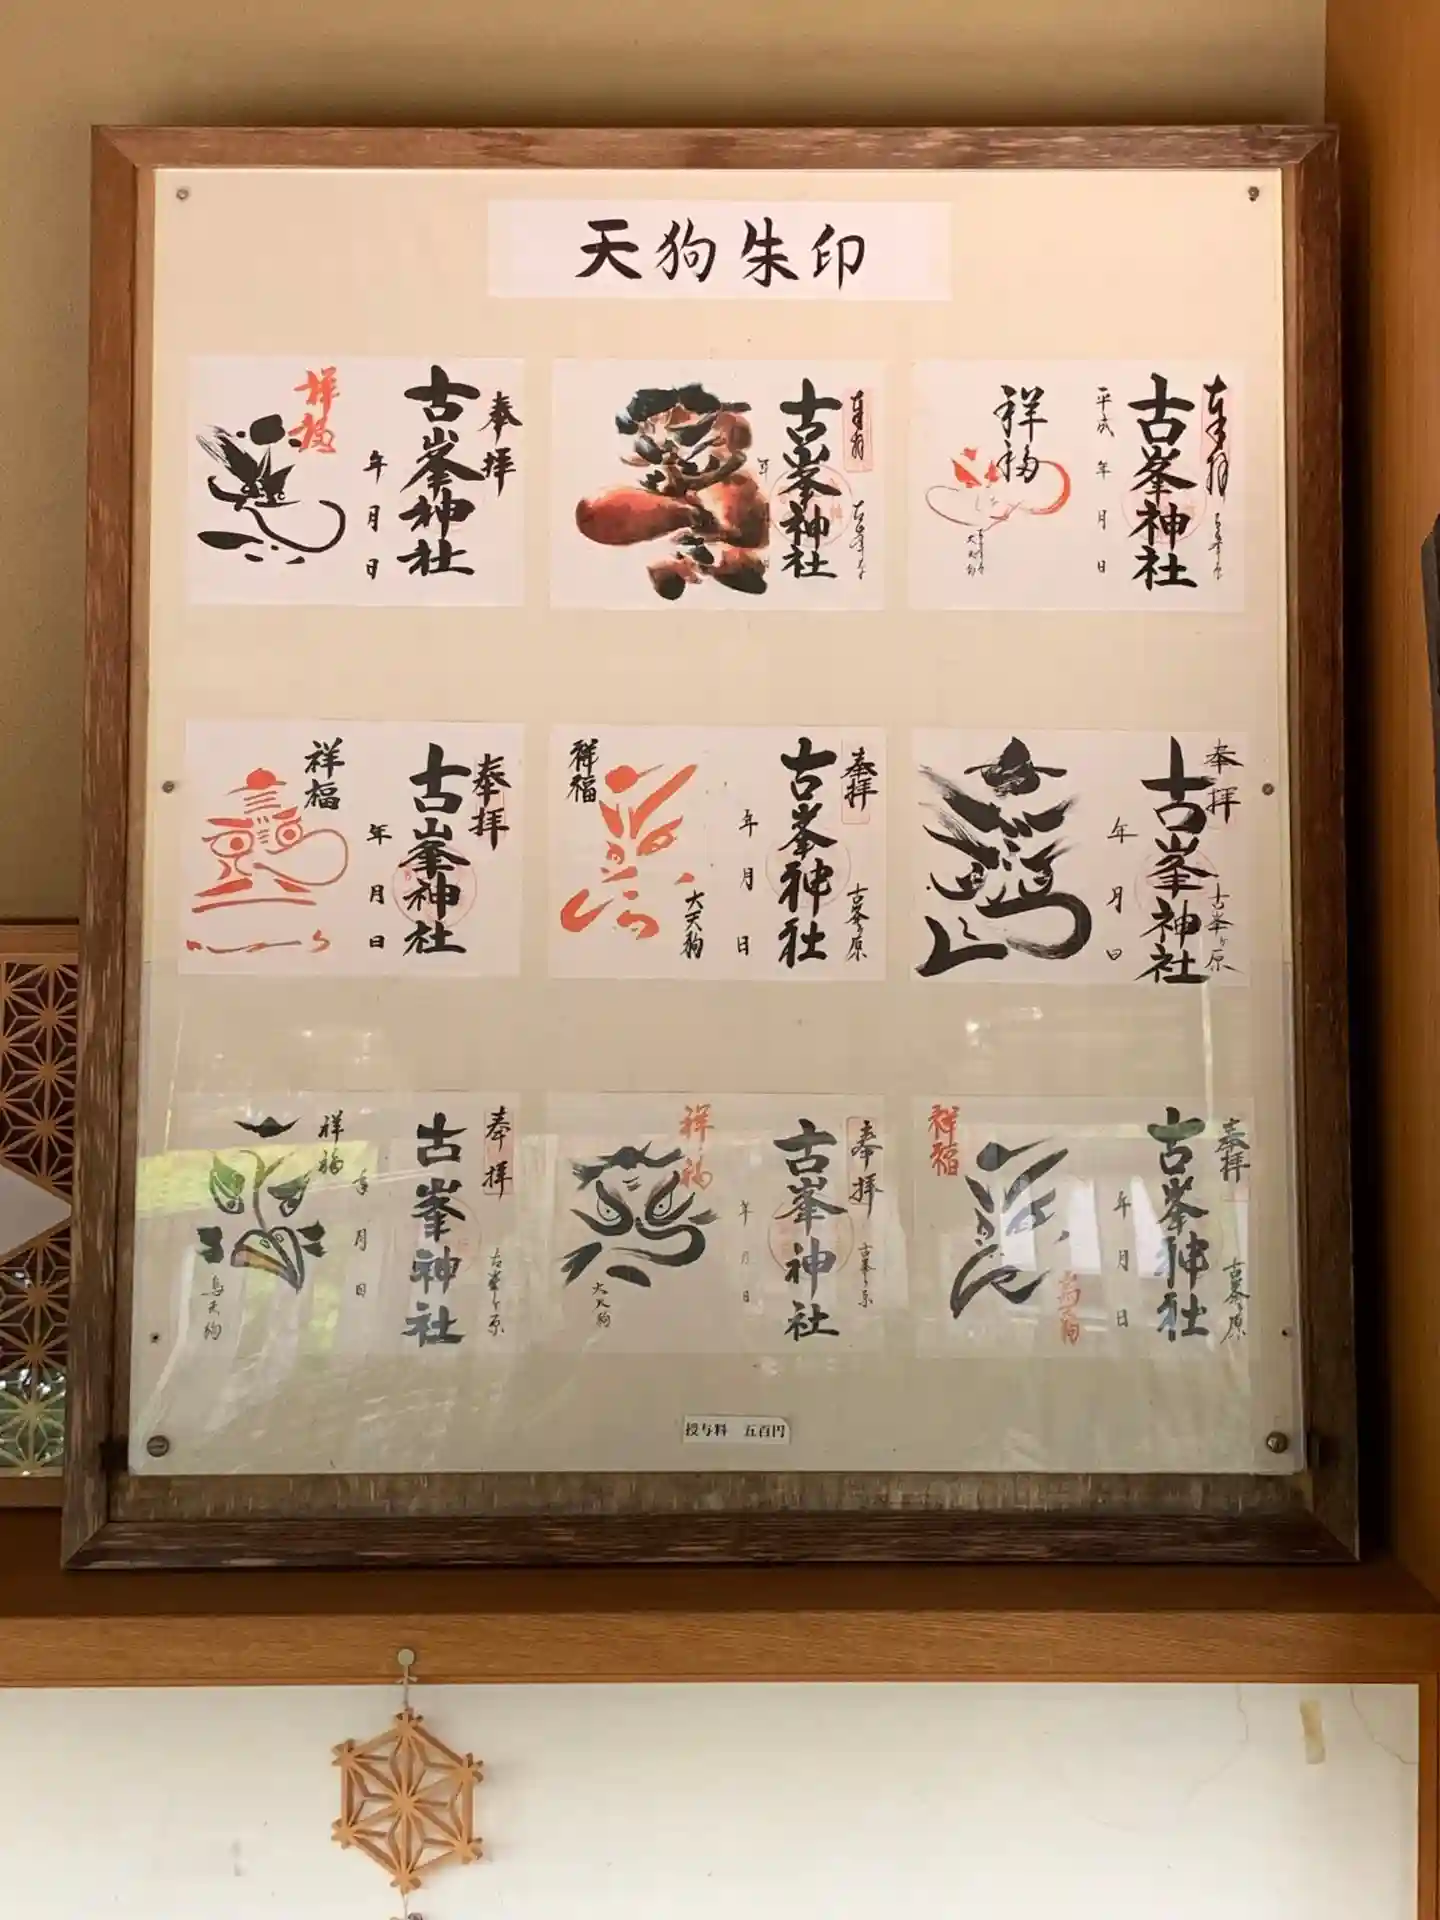 天狗朱印
奉拝
古峯神社
年 月 日
祥福
奉拝
古峯神社
年
日
奉拝
古峯神社
平成 年 月 日
祥福
大天狗
奉拝
古峯神社
年 月 日
祥福
奉拝
古峯ヶ原
古峯神社
年 月 日
祥福
大天狗
奉拝
古峯ヶ原
古峯神社
年 月 日
奉拝
古峯ヶ原
古峯神社
年 月 日
祥福
烏天狗
奉拝
古峯ヶ原
古峯神社
年 月 日
祥福
大天狗
奉拝
古峯ヶ原
古峯神社
年 月 日
祥福
烏天狗
授与料 五百円